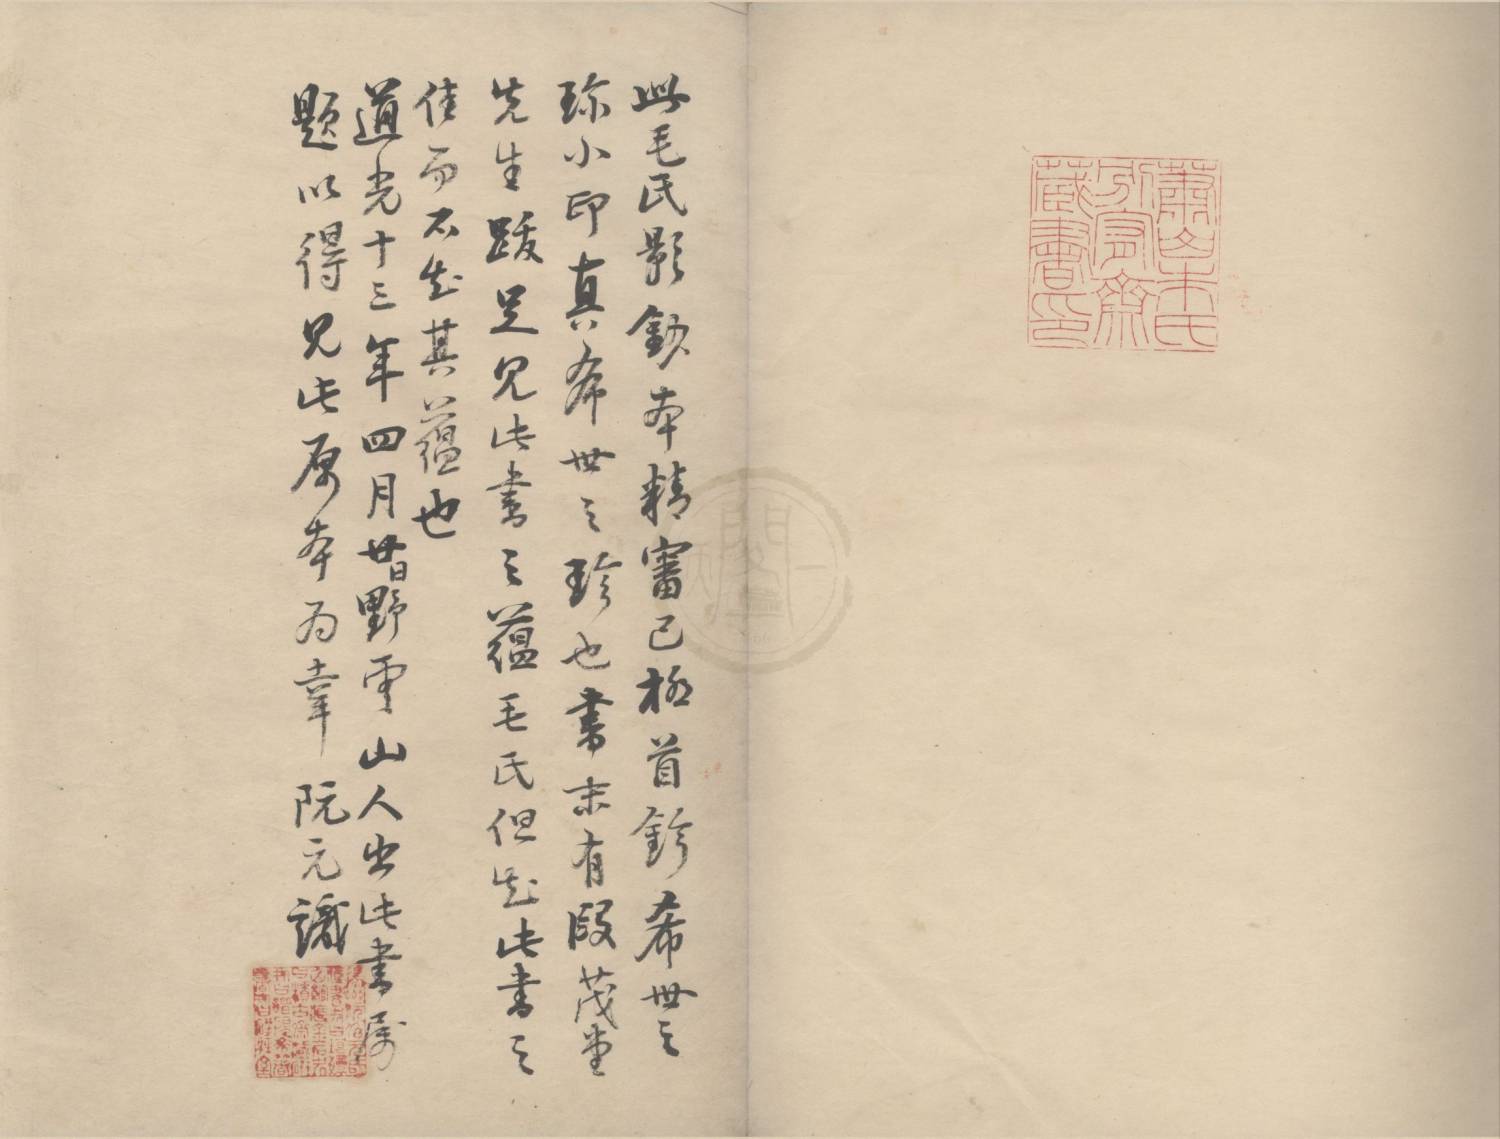 蕭山朱氏
別宥齋
藏書印
此毛氏影鈔本精審已極首鈐希世之
珎小印真希世之珍也書末有段茂堂
先生跋足見此書之蘊毛氏但知此書之
佳而不知其蘊也
道光十三年四月廿日野雲山人出此書屬
題以得見此原本為幸阮元識